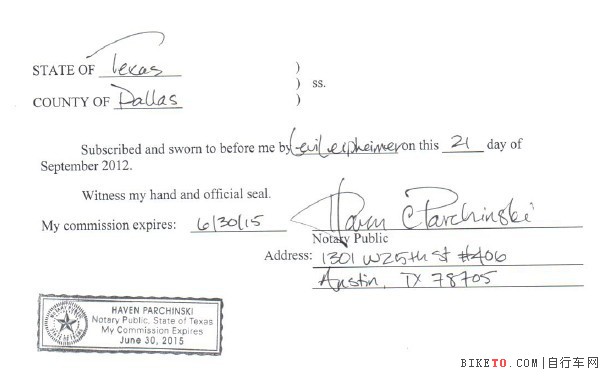 STATE OF Texas )
) ss.
COUNTY OF Dallas )
Subscribed and sworn to before me by Levi Leipheimer on this 21 day of
September 2012.
Witness my hand and official seal.
My commission expires: 6/30/15 Haven C Parchinski
Notary Public
Address: 1301 W 25th St #406
Austin, TX 78705
HAVEN PARCHINSKI
Notary Public, State of Texas
My Commission Expires
June 30, 2015
BIKETO.COM|自行车网